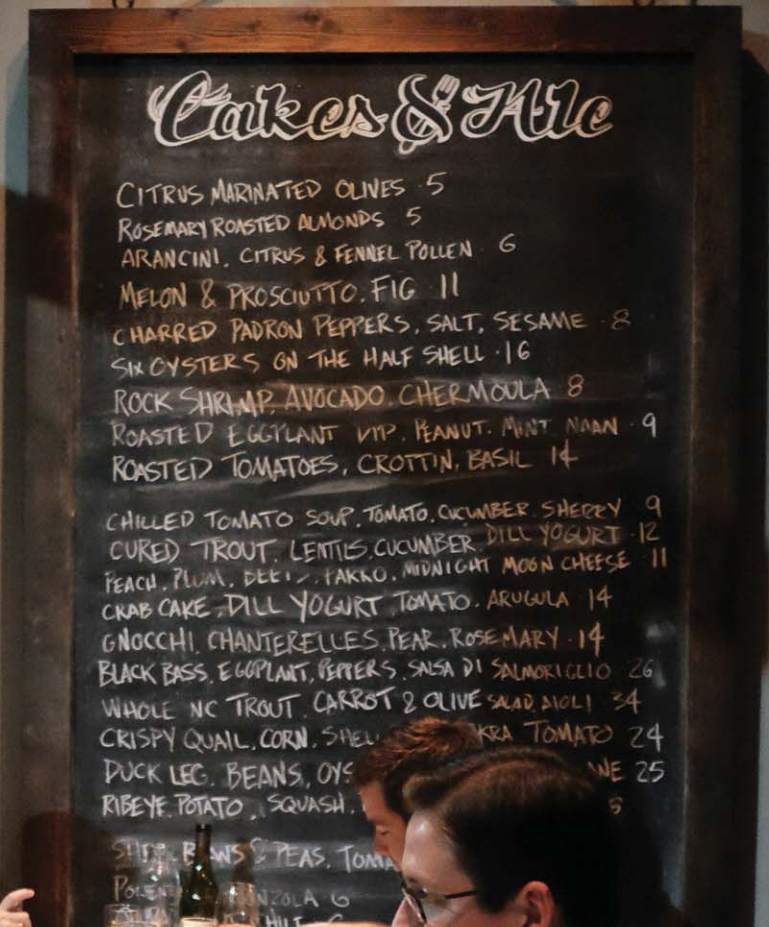 Cakes & Ale
CITRUS MARINATED OLIVES · 5
ROSEMARY ROASTED ALMONDS 5
ARANCINI, CITRUS & FENNEL POLLEN · 6
MELON & PROSCIUTTO, FIG 11
CHARRED PADRON PEPPERS, SALT, SESAME · 8
SIX OYSTERS ON THE HALF SHELL · 16
ROCK SHRIMP, AVOCADO, CHERMOULA 8
ROASTED EGGPLANT DIP, PEANUT, MINT, NAAN · 9
ROASTED TOMATOES, CROTTIN, BASIL 14
CHILLED TOMATO SOUP, TOMATO, CUCUMBER, SHERRY 9
CURED TROUT, LENTILS, CUCUMBER, DILL YOGURT · 12
PEACH, PLUM, FARRO, MIDNIGHT MOON CHEESE · 11
CRAB CAKE, DILL YOGURT, TOMATO, ARUGULA · 14
GNOCCHI, CHANTERELLES, PEAR, ROSEMARY · 14
BLACK BASS, EGGPLANT, PEPPERS, SALSA DI SALMORIGLIO 26
WHOLE NC TROUT, CARROT & OLIVE SALAD, AIOLI · 34
CRISPY QUAIL, CORN, TOMATO 24
DUCK LEG, BEANS, 25
RIBEYE, POTATO, SQUASH,
& PEAS,
6